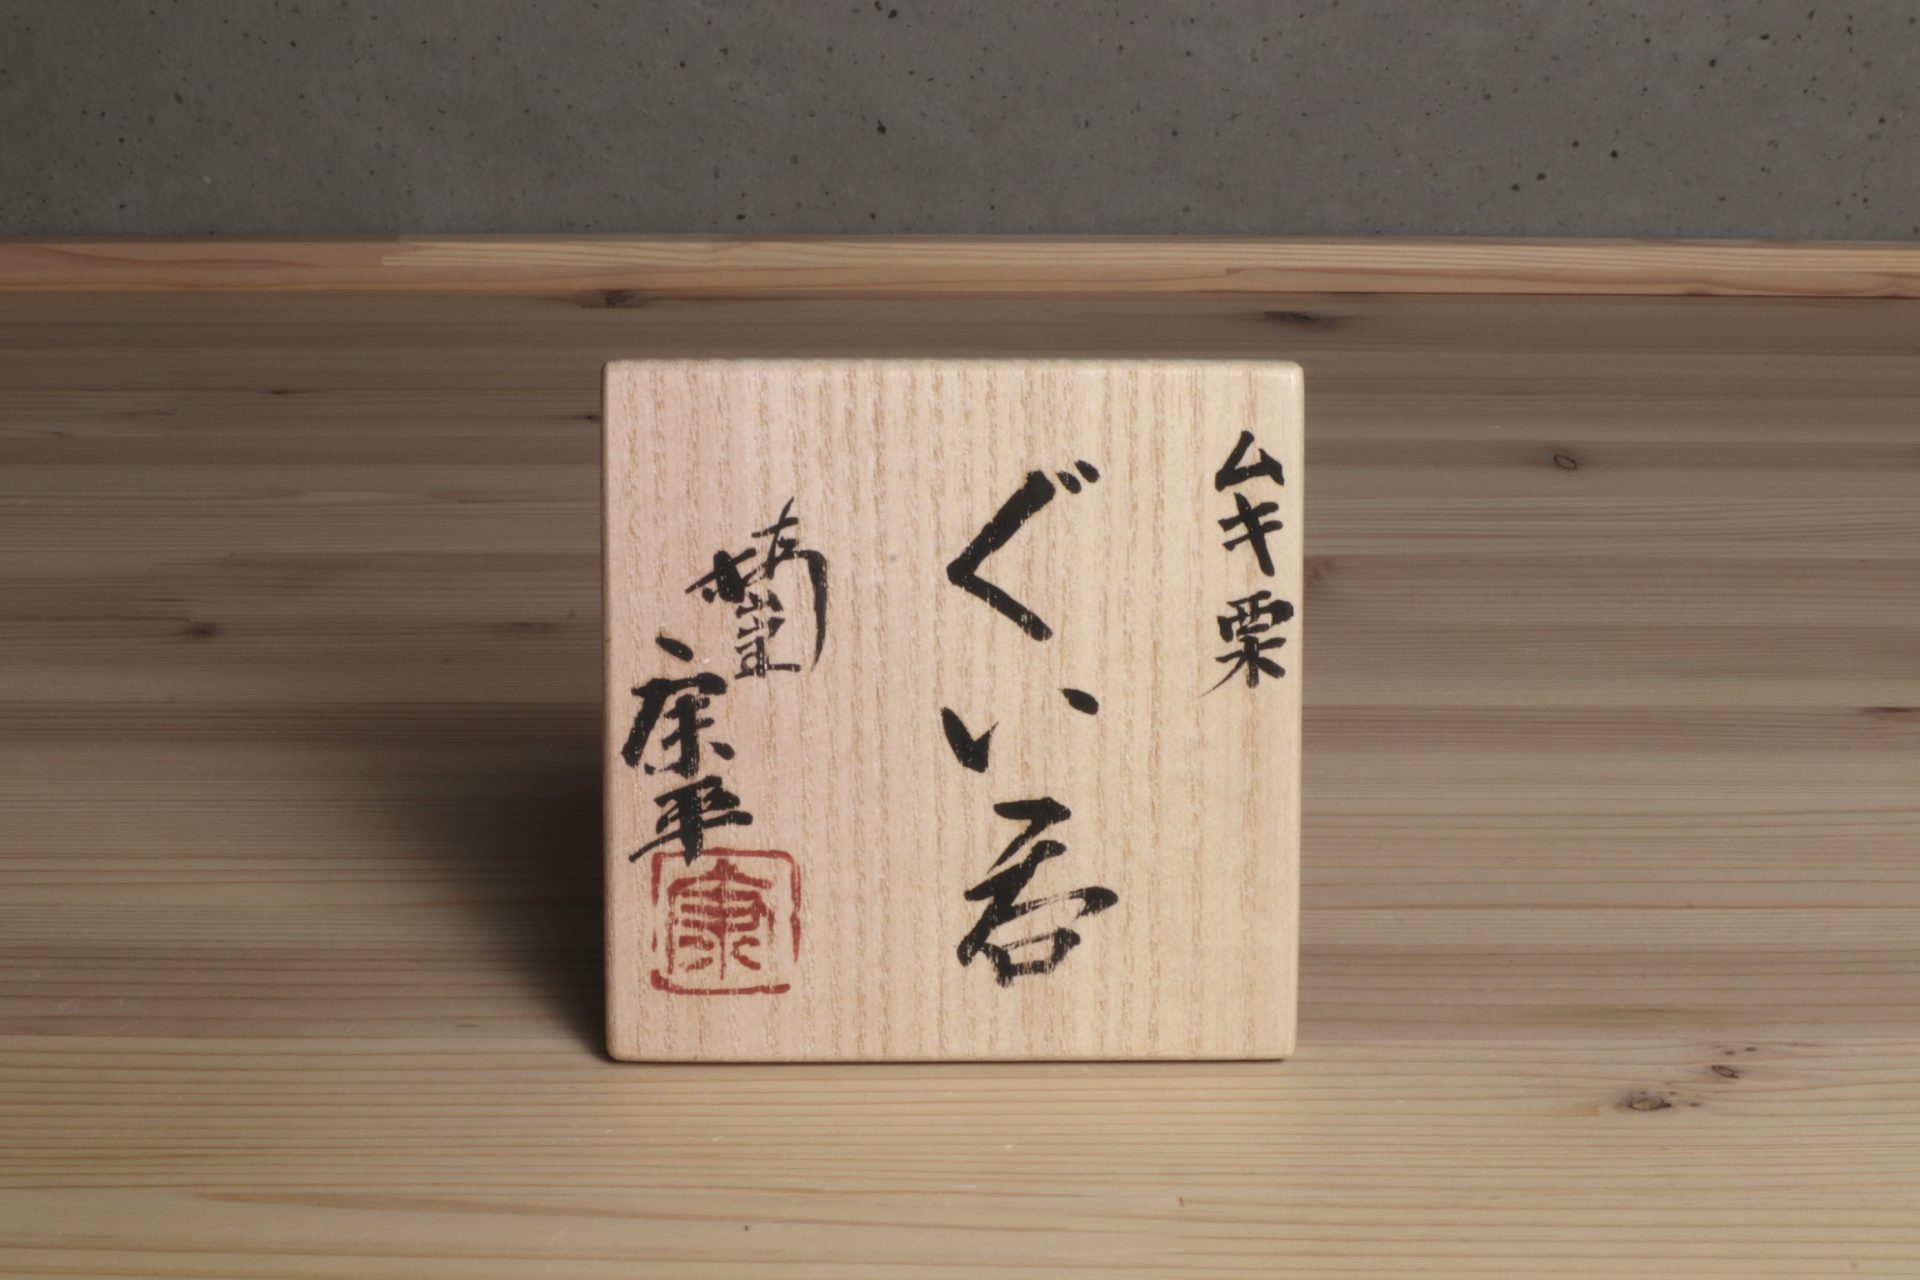 ムキ栗
ぐい呑
康平
康